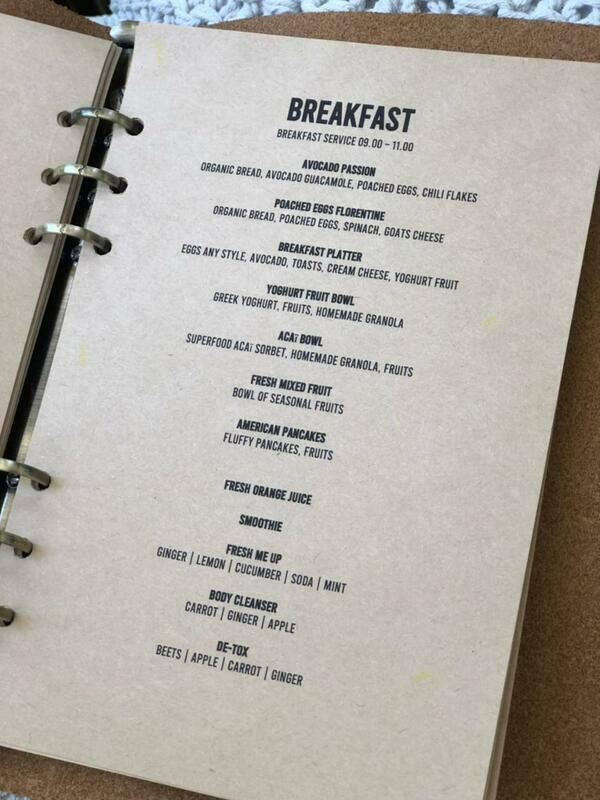 BREAKFAST
BREAKFAST SERVICE 09.00 - 11.00
AVOCADO PASSION
ORGANIC BREAD, AVOCADO GUACAMOLE, POACHED EGGS, CHILI FLAKES
POACHED EGGS FLORENTINE
ORGANIC BREAD, POACHED EGGS, SPINACH, GOATS CHEESE
BREAKFAST PLATTER
EGGS ANY STYLE, AVOCADO, TOASTS, CREAM CHEESE, YOGHURT FRUIT
YOGHURT FRUIT BOWL
GREEK YOGHURT, FRUITS, HOMEMADE GRANOLA
ACAï BOWL
SUPERFOOD ACAï SORBET, HOMEMADE GRANOLA, FRUITS
FRESH MIXED FRUIT
BOWL OF SEASONAL FRUITS
AMERICAN PANCAKES
FLUFFY PANCAKES, FRUITS
FRESH ORANGE JUICE
SMOOTHIE
FRESH ME UP
GINGER | LEMON | CUCUMBER | SODA | MINT
BODY CLEANSER
CARROT | GINGER | APPLE
DE-TOX
BEETS | APPLE | CARROT | GINGER